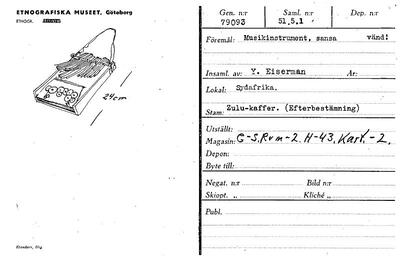 ETNOGRAFISKA MUSEET, Göteborg
ETNOGR.
24cm
Elanders, Gbg
Gen. n:r
79093
Saml. n:r
51.5.1
Dep. n:r
Föremål: Musikinstrument, sansa vänd!
Insaml. av: Y. Eiserman År:
Lokal: Sydafrika.
Stam: Zulu-kaffer. (Efterbestämning)
Utställt:
Magasin: G-S.Rvm-2. H-43, Kart.-2.
Depon:
Byte till:
Negat. n:r Bild n:r
Skiopt. „ Kliché „
Publ.